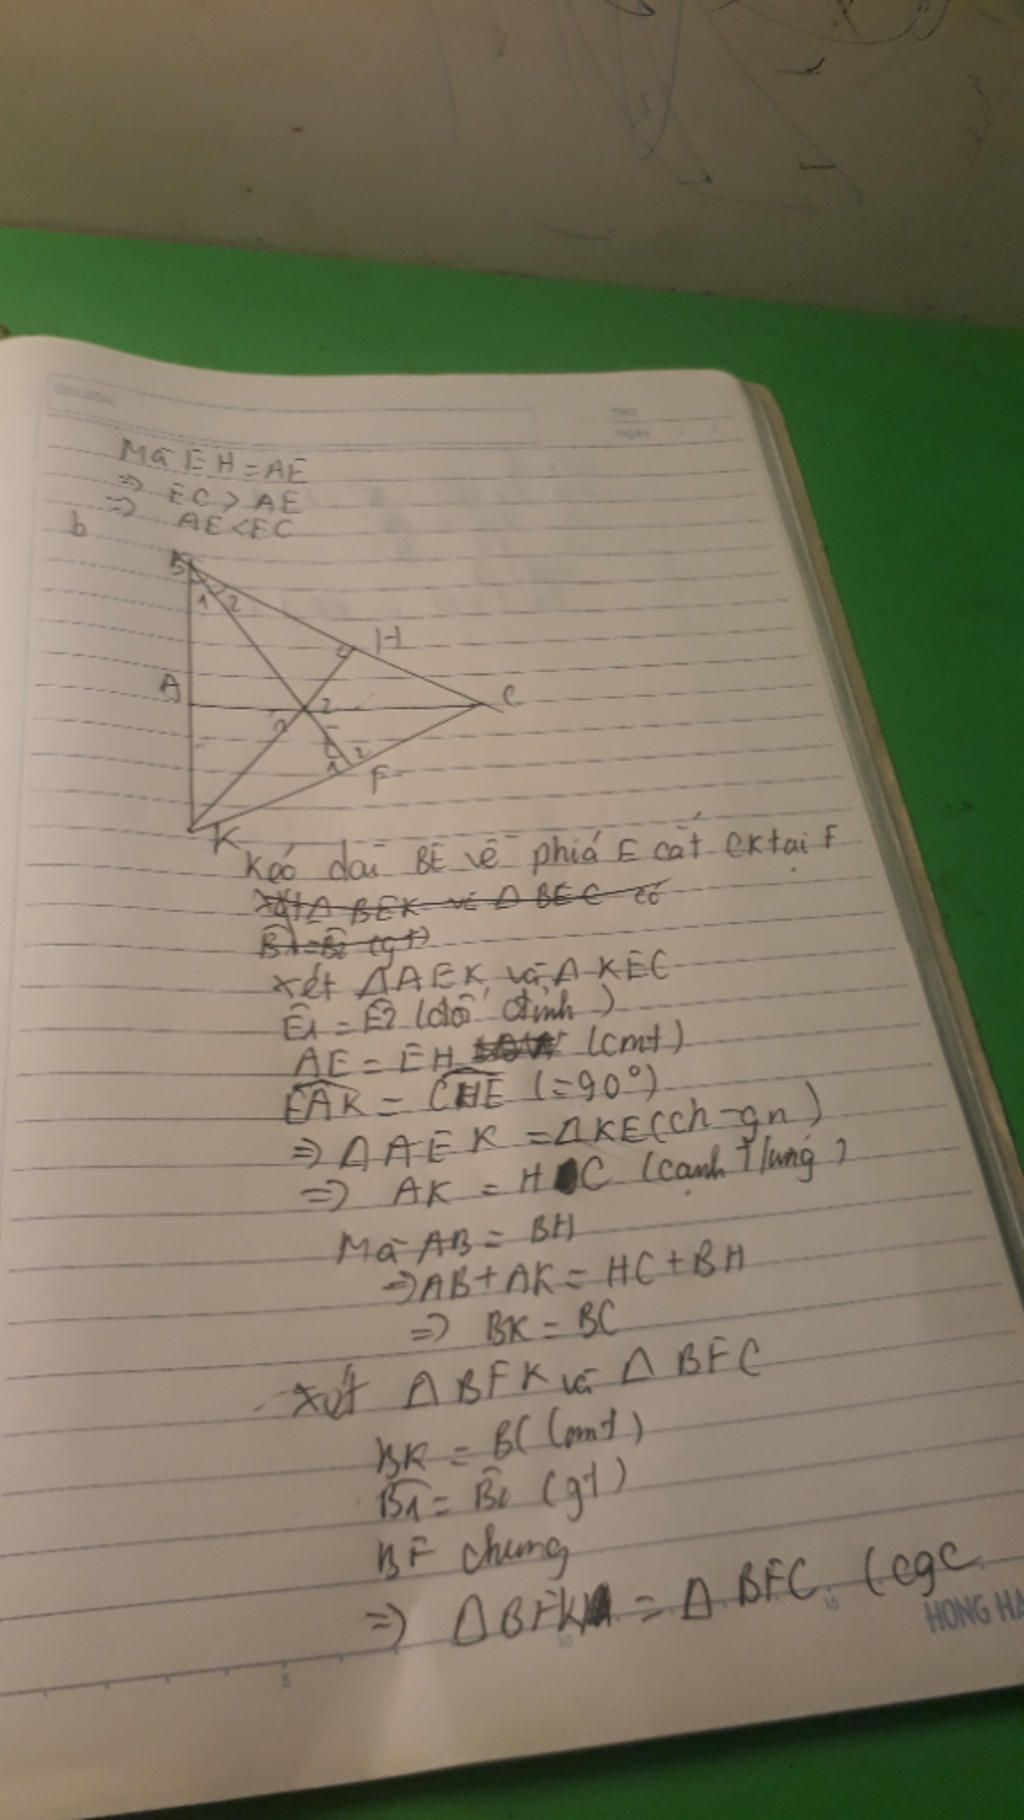 Mà EH = AE
=> EC > AE
=> AE < EC
b
B
1 2
H
A
2
C
2
1 2
F
K
Kéo dài BE về phiá E cắt CK tại F
Xét Δ BEK và Δ BEC có
B1 = B2 (gt)
Xét ΔAEK và Δ KEC
Ê1 = Ê2 (đối đỉnh)
AE = EH (cmt)
EAK = CHE (=90°)
=> ΔAEK = ΔKE (ch-gn)
=> AK = HC (cạnh t/ứng)
Mà AB = BH
=> AB + AK = HC + BH
=> BK = BC
Xét Δ BFK và Δ BFC
BK = BC (cmt)
B1 = B2 (gt)
BF chung
=> Δ BFK = Δ BFC (cgc
HONG HA
5
10